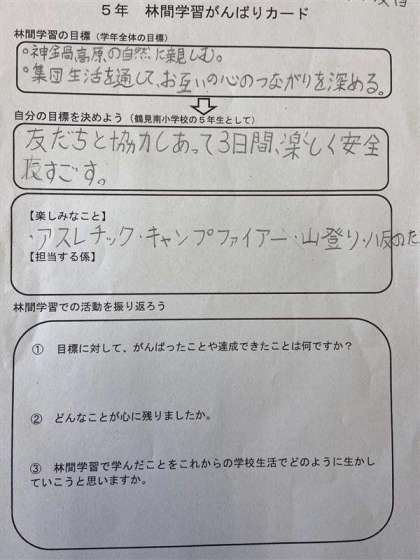 ５年　林間学習がんばりカード
林間学習の目標（学年全体の目標）
○神鍋高原の自然に親しむ。
○集団生活を通して、お互いの心のつながりを深める。
自分の目標を決めよう（鶴見南小学校の５年生として）
友だちと協力しあって3日間、楽しく安全
すごす。
【楽しみなこと】
・アスレチック・キャンプファイアー・山登り・
【担当する係】
林間学習での活動を振り返ろう
①　目標に対して、がんばったことや達成できたことは何ですか？
②　どんなことが心に残りましたか。
③　林間学習で学んだことをこれからの学校生活でどのように生かし
ていこうと思いますか。